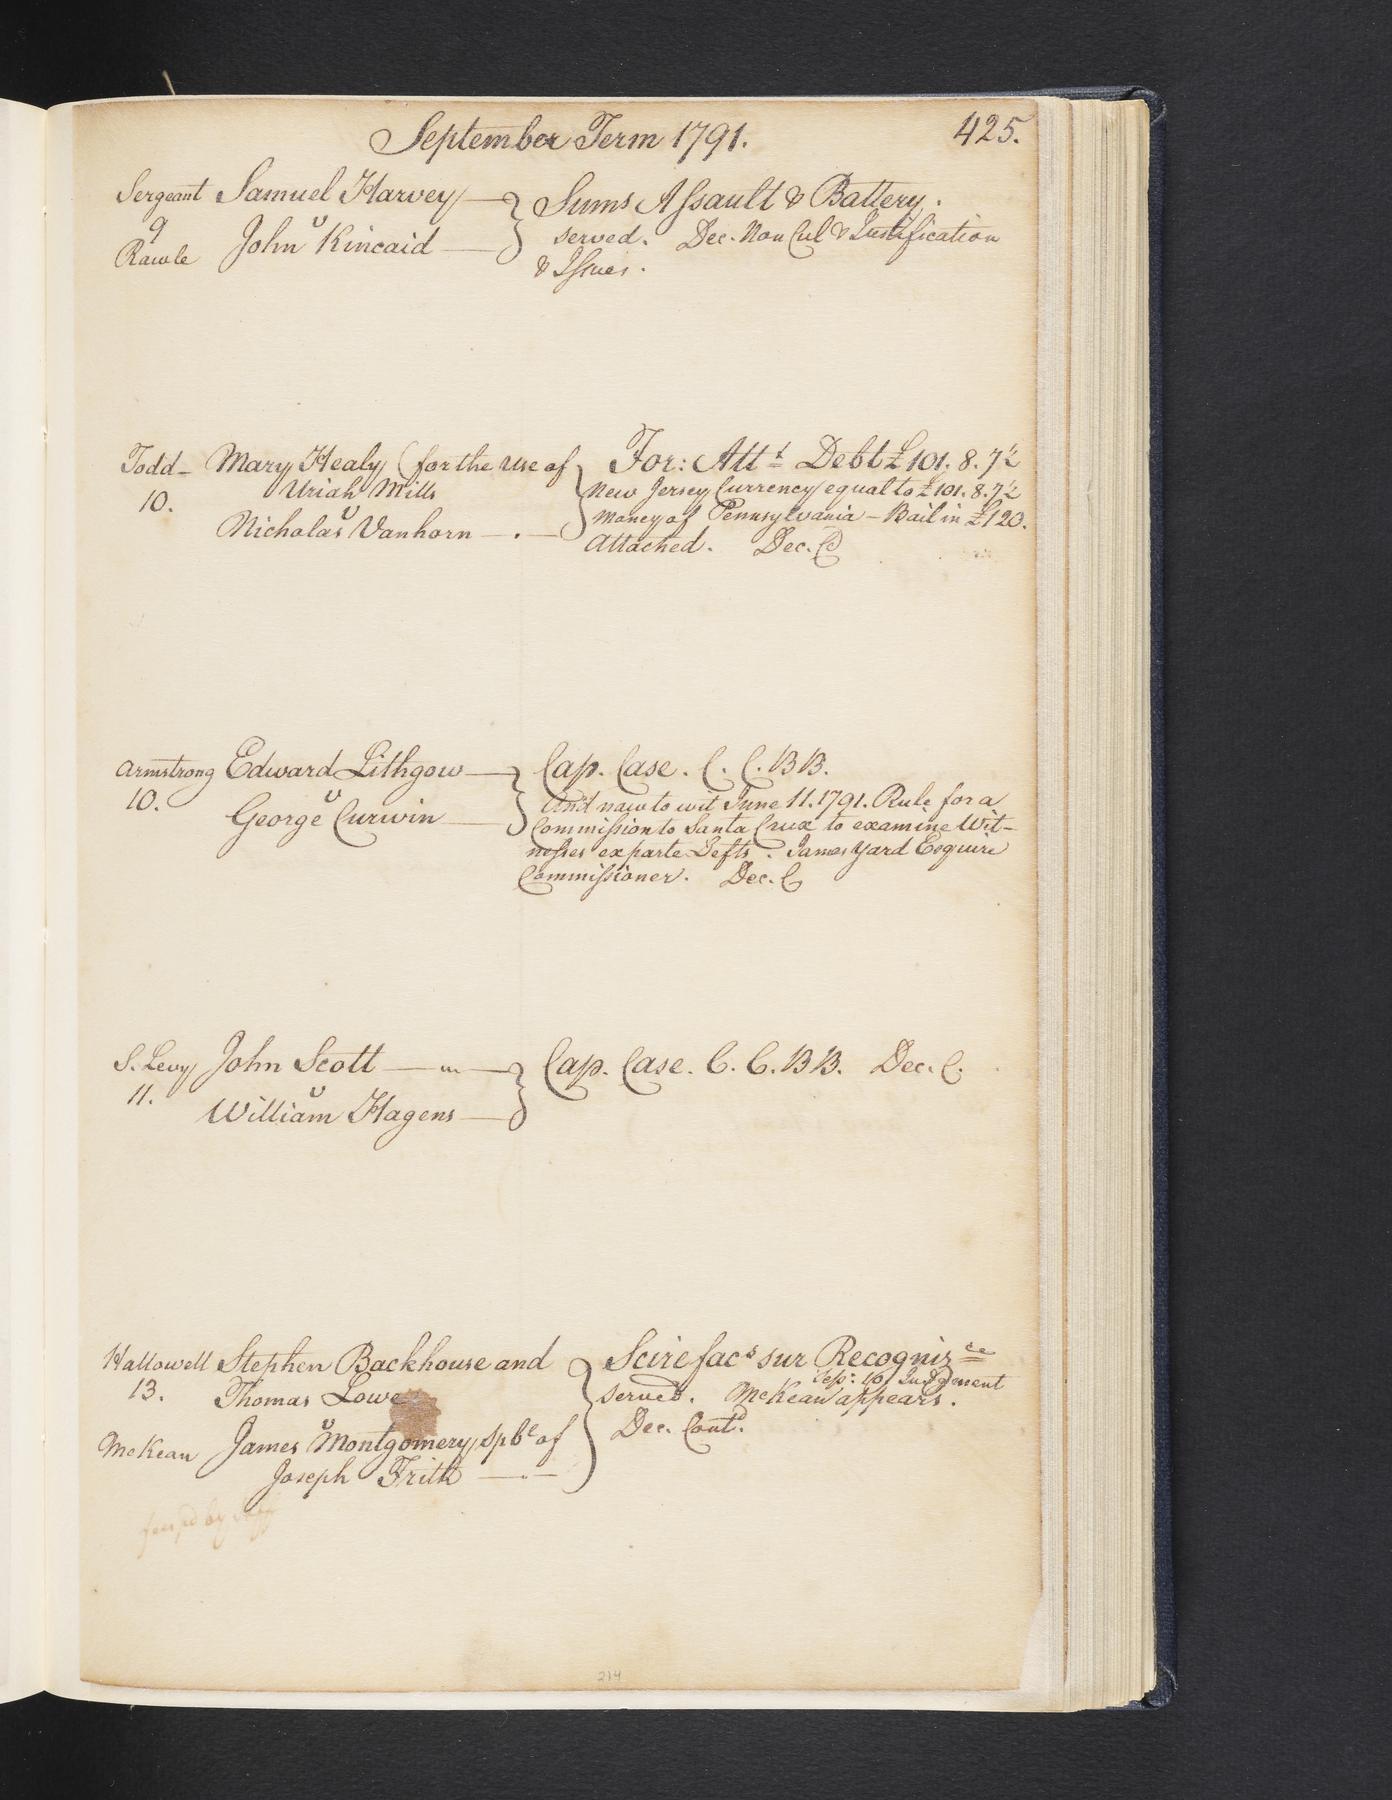 September Term 1791.
425.
Sergeant Samuel Harvey
9 v
Rawle John Kincaid
Sums Assault & Battery.
served. Dec. Non Cul & Justification
& Issues.
Todd- Mary Healy (for the use of
Uriah Mills
10. v
Nicholas Vanhorn
For: Attt Debt £101.8.7½
New Jersey Currency equal to £101.8.7½
money of Pennsylvania - Bail in £120.
attached. Dec. C
Armstrong Edward Lithgow
10. v
George Curwin
Cap. Case. C. C. BB.
And now to wit June 11. 1791. Rule for a
Commission to Santa Crux to examine Wit-
nesses exparte Defts. James Yard Esquire
Commissioner. Dec. C
S. Levy John Scott
11. v
William Hagens
Cap. Case. C. C. BB. Dec. C.
Hallowell Stephen Backhouse and
13. Thomas Lowe
v
McKean James Montgomery, spbl of
Joseph Frith
Scire facs sur Recognizce
16. Judgment
served. McKean appears.
Dec. Contd.
by
214